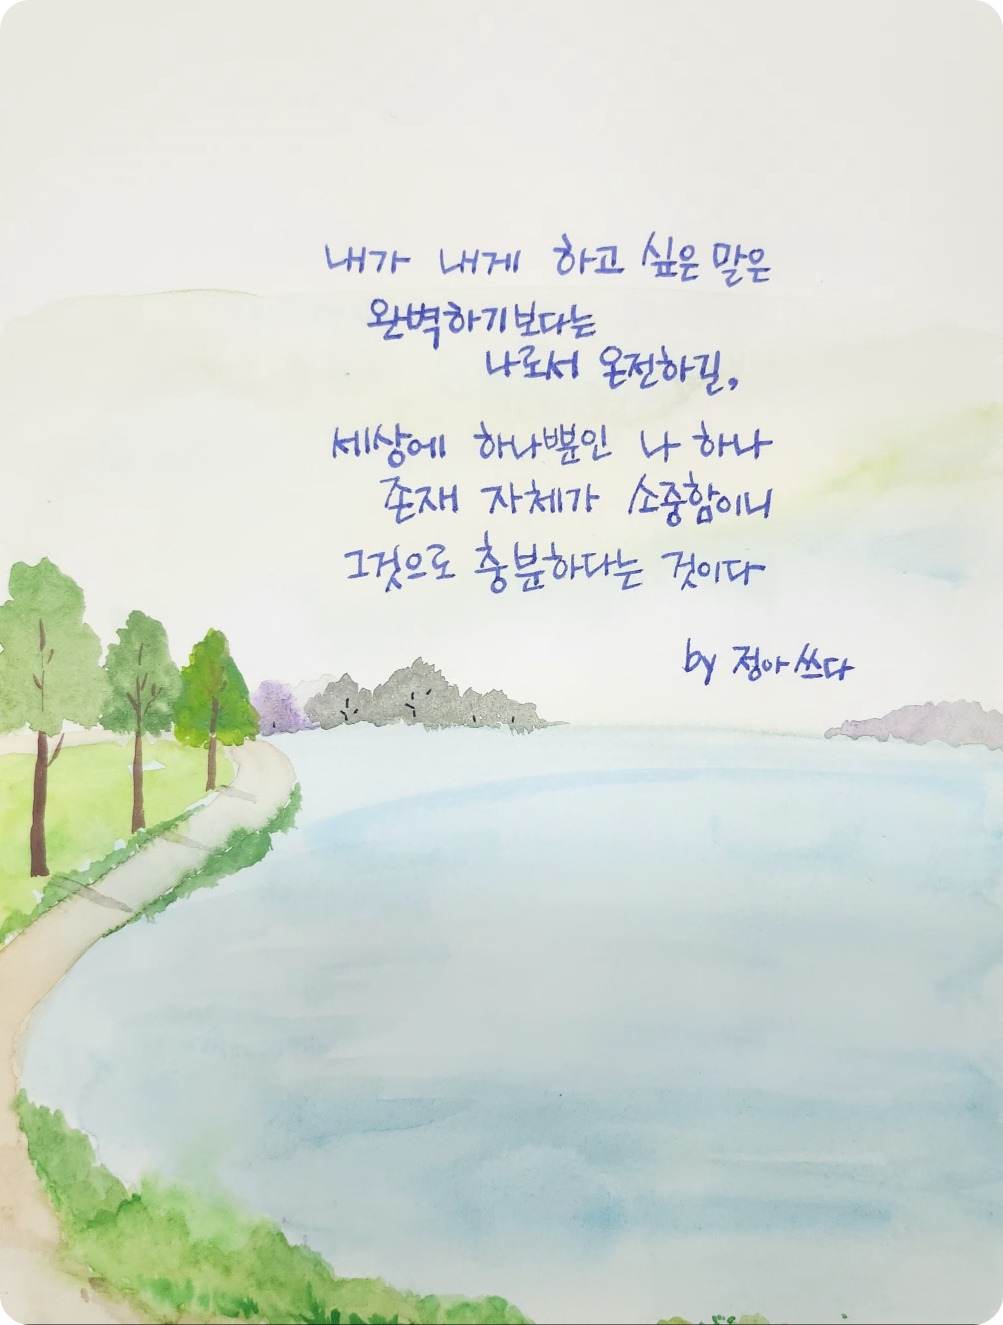 내가 내게 하고 싶은 말은
완벽하기보다는
나로서 온전하길,
세상에 하나뿐인 나 하나
존재 자체가 소중함이니
그것으로 충분하다는 것이다
by 정아쓰다